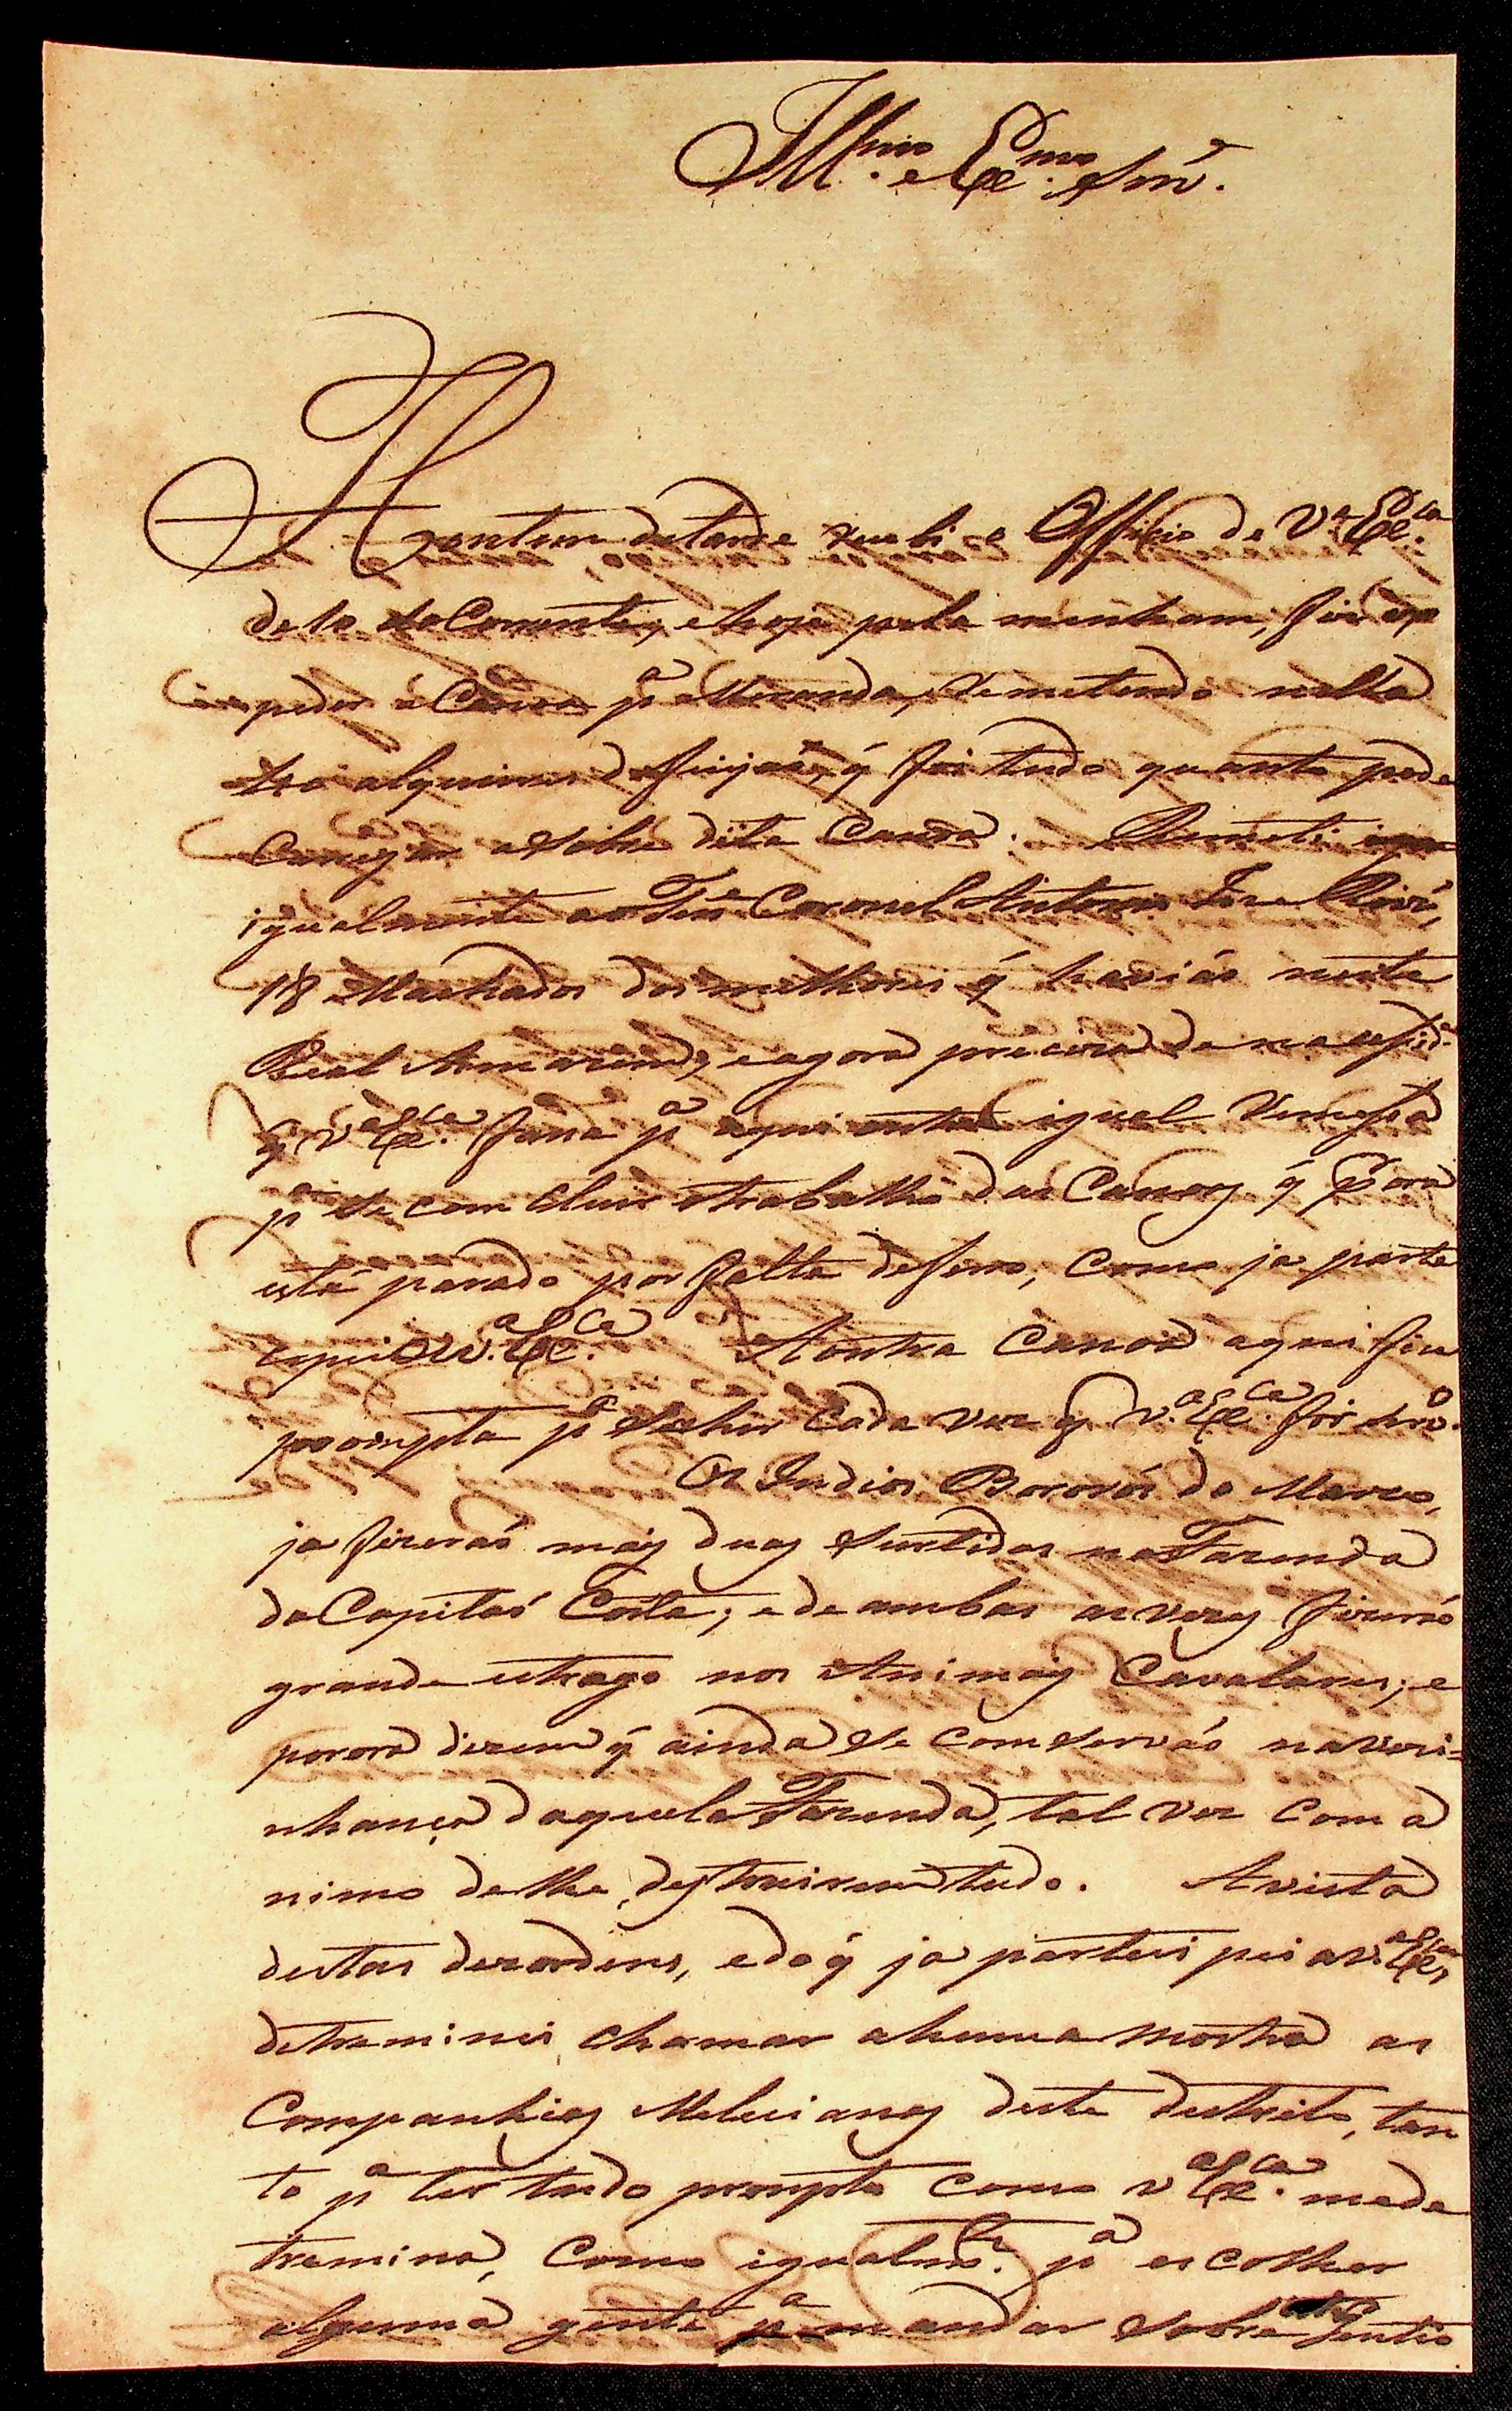 Illmo. e Exmo. Snr̃.
Hontem detarde recebi o Officio de Va. Exca.
de 10 do Corrente, e hoje pela menham, fis ex
pedir a Canoa pa. Miranda, Remetendo nella
alqueires de feijaõ, q̃ foi tudo quanto pode
Carregar a sobre dita Canoa. Remeti
igualmente ao Tene. Coronel Antonio Joze Roiz̃,
18 Machados dos melhores q̃ haviaõ neste
Real Armazem, e agora preciza de necessid.
q̃ V.a Exca. faça pa. aqui outra igual Remessa
pa. se com cluir o trabalho das Canoas q̃ por ora
está parado por falta de ferro, como ja parte
cipei a V.a Exca. A outra Canoa aqui fica
prompta pa. sahir Cada vez q̃ V.a Exca. for servo.
Os Indios Bororós do Marco,
ja fizeraõ mais duas surtidas na Fazenda
do Capitaõ Costa; e de ambas as vezes fizeraõ
grande estrago nos Animais Cavalares; e
por ora dizem q̃ ainda se comservaõ na vezi=
nhança daquela Fazenda, tal vez com a
nimo de lhe destruirem tudo. A vista
destas dezordens, e do q̃ ja parteci pei a V.a Exca.,
detreminei chamar a huma mostra as
Companhias Melicianas deste destrito, tan
to pa. ter tudo prompto como V.a Exca. me de
tremina, como igualmte. pa. es colher
alguma gente pa. mandar sobre este Gentio